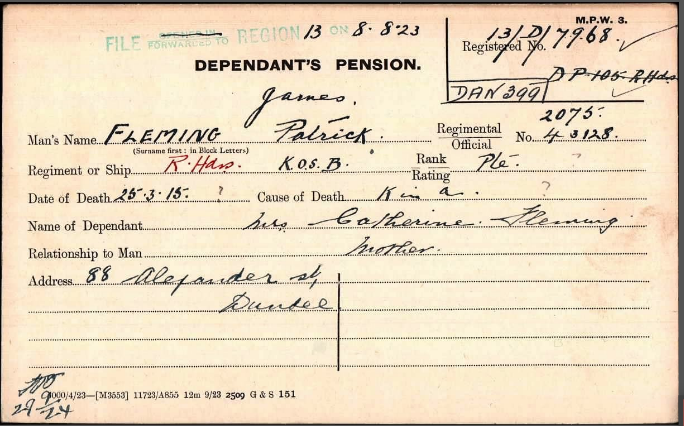 M.P.W. 3.
FILE FORWARDED TO REGION 13 ON 8·8·23
Registered No. 13/D/7968.
DEPENDANT'S PENSION.
DP 105 R Hdrs
DAN 399
James.
2075.
Man's Name FLEMING Patrick. Regimental Official No. 43128.
(Surname first: in Block Letters)
Regiment or Ship R. Hdrs. K.O.S.B. Rank Rating Pte. ?
Date of Death 25·3·15. ? Cause of Death K in a. ?
Name of Dependant Mrs Catherine Fleming.
Relationship to Man Mother.
Address 88 Alexander St,
Dundee
29/9/24
000/4/23—[M3553] 11723/A855 12m 9/23 2509 G & S 151